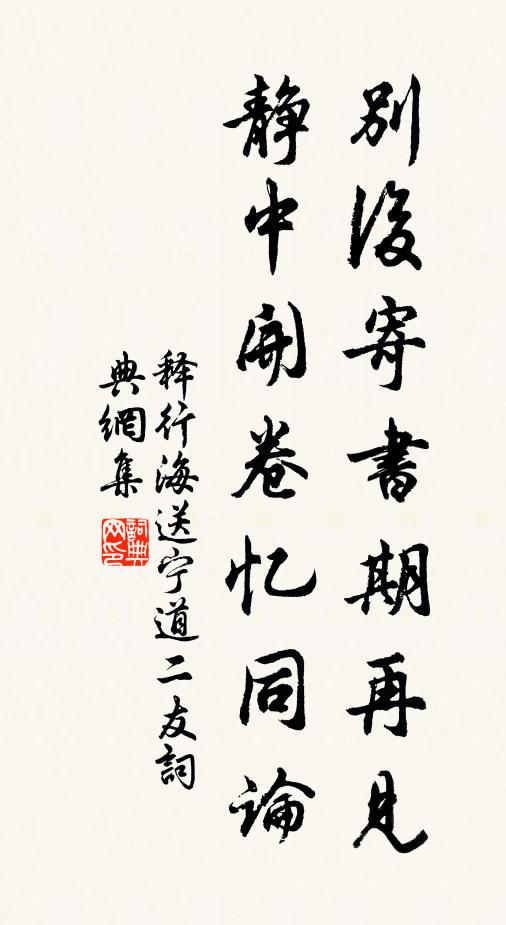 別後寄書期再見
静中開卷忆同論
释行海送宁道二友詞
典網集
詞典网印